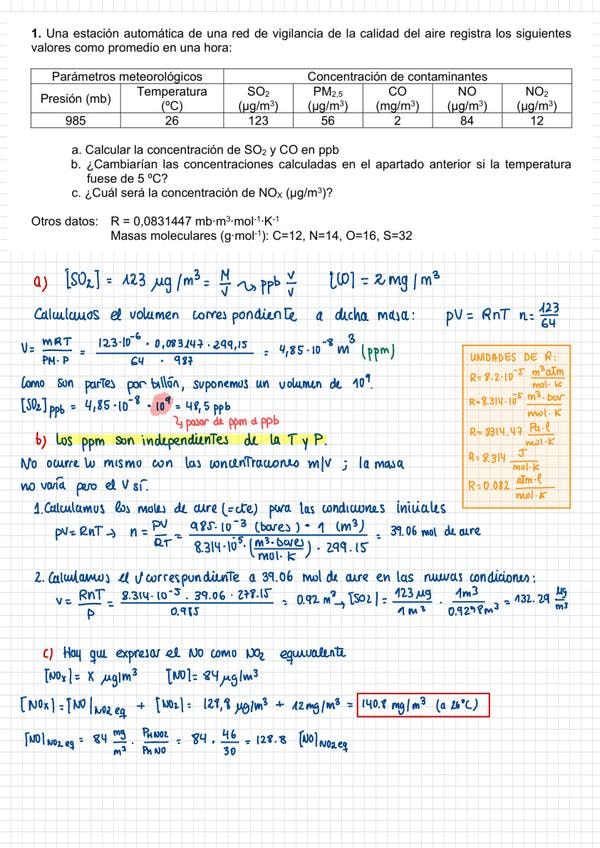 1. Una estación automática de una red de vigilancia de la calidad del aire registra los siguientes
valores como promedio en una hora:
Parámetros meteorológicos Concentración de contaminantes
Presión (mb) Temperatura (ºC) SO₂ (µg/m³) PM₂,₅ (µg/m³) CO (mg/m³) NO (µg/m³) NO₂ (µg/m³)
985 26 123 56 2 84 12
a. Calcular la concentración de SO₂ y CO en ppb
b. ¿Cambiarían las concentraciones calculadas en el apartado anterior si la temperatura
fuese de 5 ºC?
c. ¿Cuál será la concentración de NOₓ (µg/m³)?
Otros datos: R = 0,0831447 mb·m³·mol⁻¹·K⁻¹
Masas moleculares (g·mol⁻¹): C=12, N=14, O=16, S=32
a) [SO₂] = 123 µg/m³ = M/V ⤳ ppb V/V [CO] = 2 mg/m³
Calculamos el volumen correspondiente a dicha masa: pV = RnT n = 123/64
V = mRT/PM·P = 123·10⁻⁶ · 0,083147 · 299,15 / 64 · 987 = 4,85·10⁻⁸ m³ (ppm)
Como son partes por billón, suponemos un volumen de 10⁹.
[SO₂]ppb = 4,85·10⁻⁸ · 10⁹ = 48,5 ppb
↳ pasar de ppm a ppb
UNIDADES DE R:
R = 8.2·10⁻⁵ m³atm/mol·K
R = 8.314·10⁻⁵ m³·bar/mol·K
R = 8314.47 Pa·l/mol·K
R = 8.314 J/mol·K
R = 0.082 atm·l/mol·K
b) Los ppm son independientes de la T y P.
No ocurre lo mismo con las concentraciones m/v ; la masa
no varía pero el V sí.
1. Calculamos los moles de aire (=cte) para las condiciones iniciales
pV = RnT → n = PV/RT = 985·10⁻³ (bares) · 1 (m³) / 8.314·10⁻⁵ · (m³·bares/mol·K) · 299.15 = 39.06 mol de aire
2. Calculamos el V correspondiente a 39.06 mol de aire en las nuevas condiciones:
V = RnT/P = 8.314·10⁻⁵ · 39.06 · 278.15 / 0.985 = 0.92 m³ → [SO₂] = 123 µg/1 m³ · 1m³/0.9298m³ = 132.29 µg/m³
c) Hay que expresar el NO como NO₂ equivalente
[NOₓ] = X µg/m³ [NO] = 84 µg/m³
[NOₓ] = [NO]NO₂eq + [NO₂] = 128,8 µg/m³ + 12 mg/m³ = 140.8 mg/m³ (a 26°C)
[NO]NO₂eq = 84 mg/m³ · PM NO₂/PM NO = 84 · 46/30 = 128.8 [NO]NO₂eq